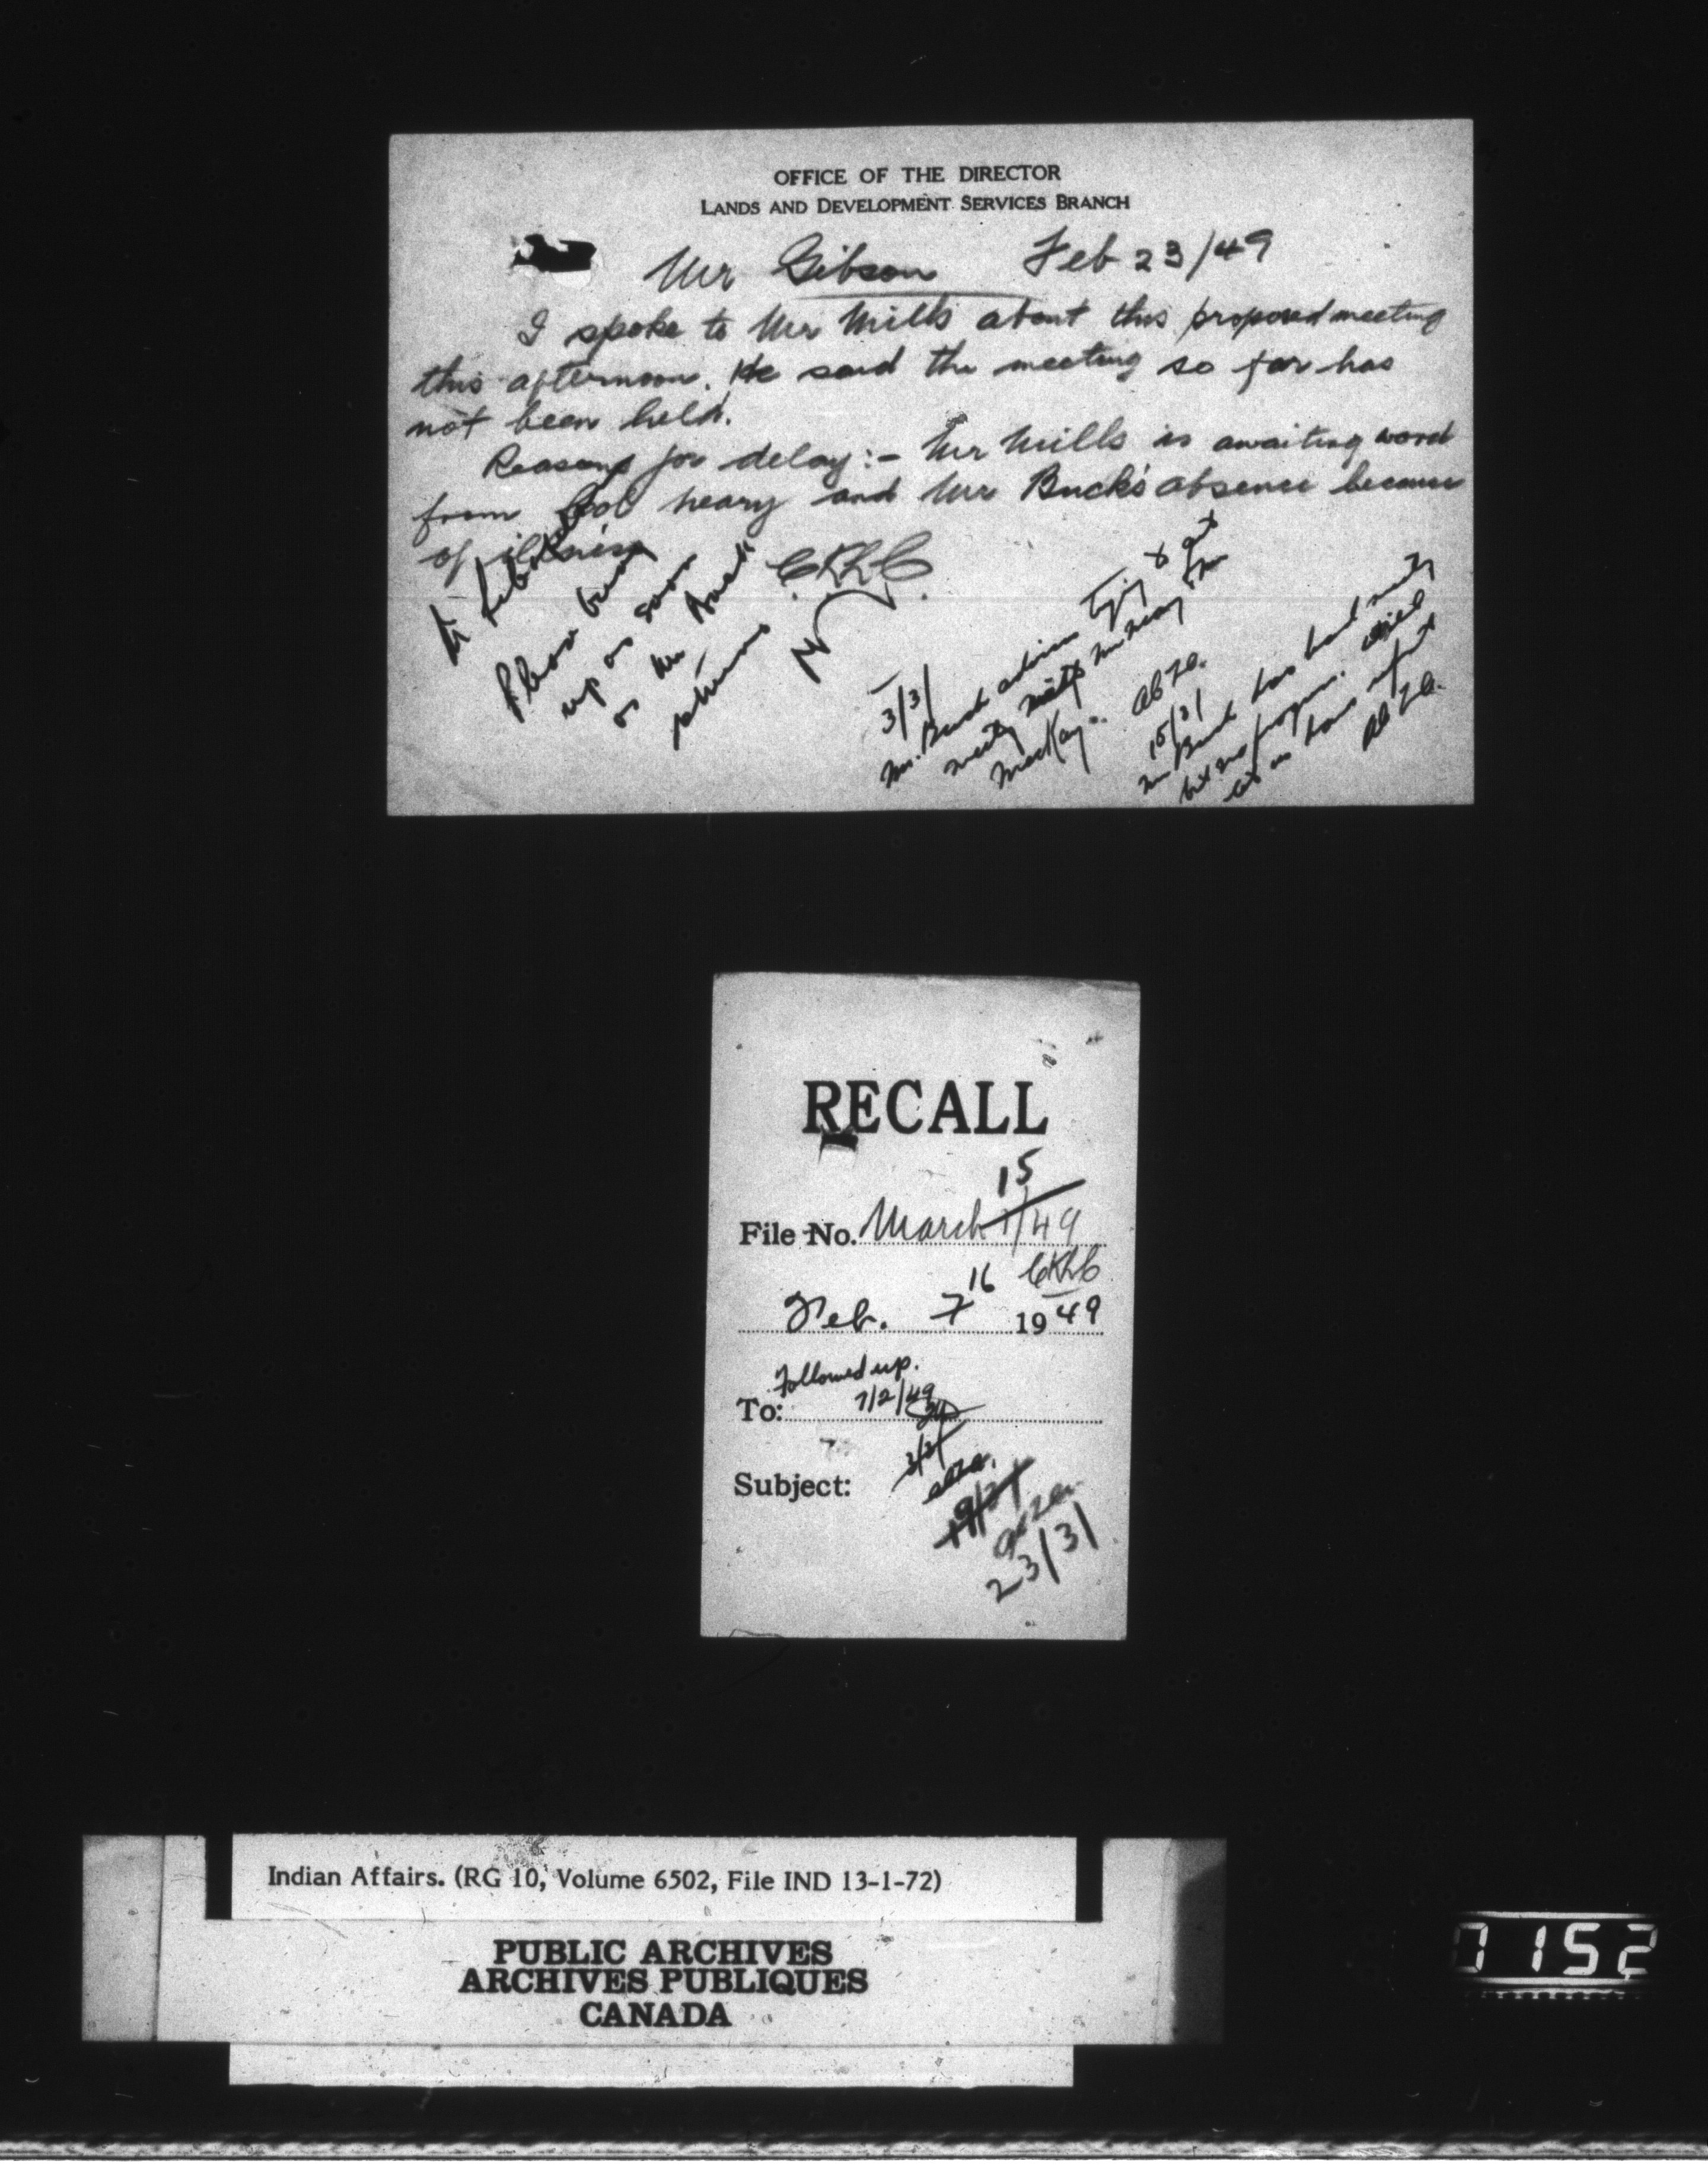 OFFICE OF THE DIRECTOR
LANDS AND DEVELOPMENT SERVICES BRANCH
Mr Gibson Feb 23/49
I spoke to Mr Mills about this proposed meeting
this afternoon. He said the meeting so far has
not been held.
Reasons for delay:- Mr Mills is awaiting word
from Col neary and Mr Buck's absence because
of illness
CKLC
Please bring
up as soon
as Mr Buck
returns
3/3/
Mr. Buck advises trying to get
meeting Mr Neary &
MacKay.
15/3/
Mr Buck has had meeting
but no progress.
let us have report
RECALL
15
File No. March 1/49
CKLC
16
Feb. 7 1949
Followed up.
To: 7/2/49
3/3/
Subject:
23/3/
Indian Affairs. (RG 10, Volume 6502, File IND 13-1-72)
PUBLIC ARCHIVES
ARCHIVES PUBLIQUES
CANADA
1152